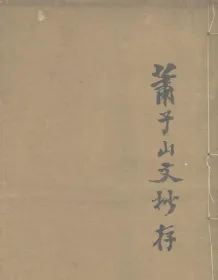 萧子山文抄存